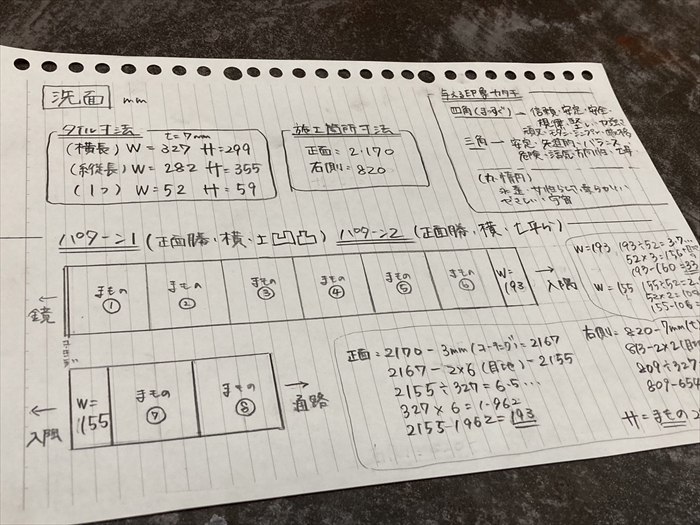 洗面 mm
タイル寸法 t=7mm
(横長) W=327 H=299
(縦長) W=282 H=355
(1つ) W=52 H=59
施工箇所寸法
正面:2.170
右側=820
与える印象カタチ
四角(まっすぐ)→信頼・安定・安全・
規律・堅い・
頑丈・モダン・シンプル・
三角→安定・先進的・バランス・
危険・活気・方向性・
(丸・楕円)
永遠・女性らしさ・柔らかい
やさしい・宇宙
パターン1 (正面勝・横・上凹凸)
パターン2 (正面勝・横・
←鏡
まもの①
まもの②
まもの③
まもの④
まもの⑤
まもの⑥
W=193
→入隅
W=193 193÷52=3.7…
52×3=156
193-160=33
W=155 155÷52=2.
52×2=10
155-10
←入隅
W=155
まもの⑦
まもの⑧
→通路
正面=2170-3mm(コーキング)=2167
2167-2×6(目地)=2155
2155÷327=6.5…
327×6=1.962
2155-1962=193
右側:820-7mm
813-2×2(目
809÷327
809-65
H=まもの